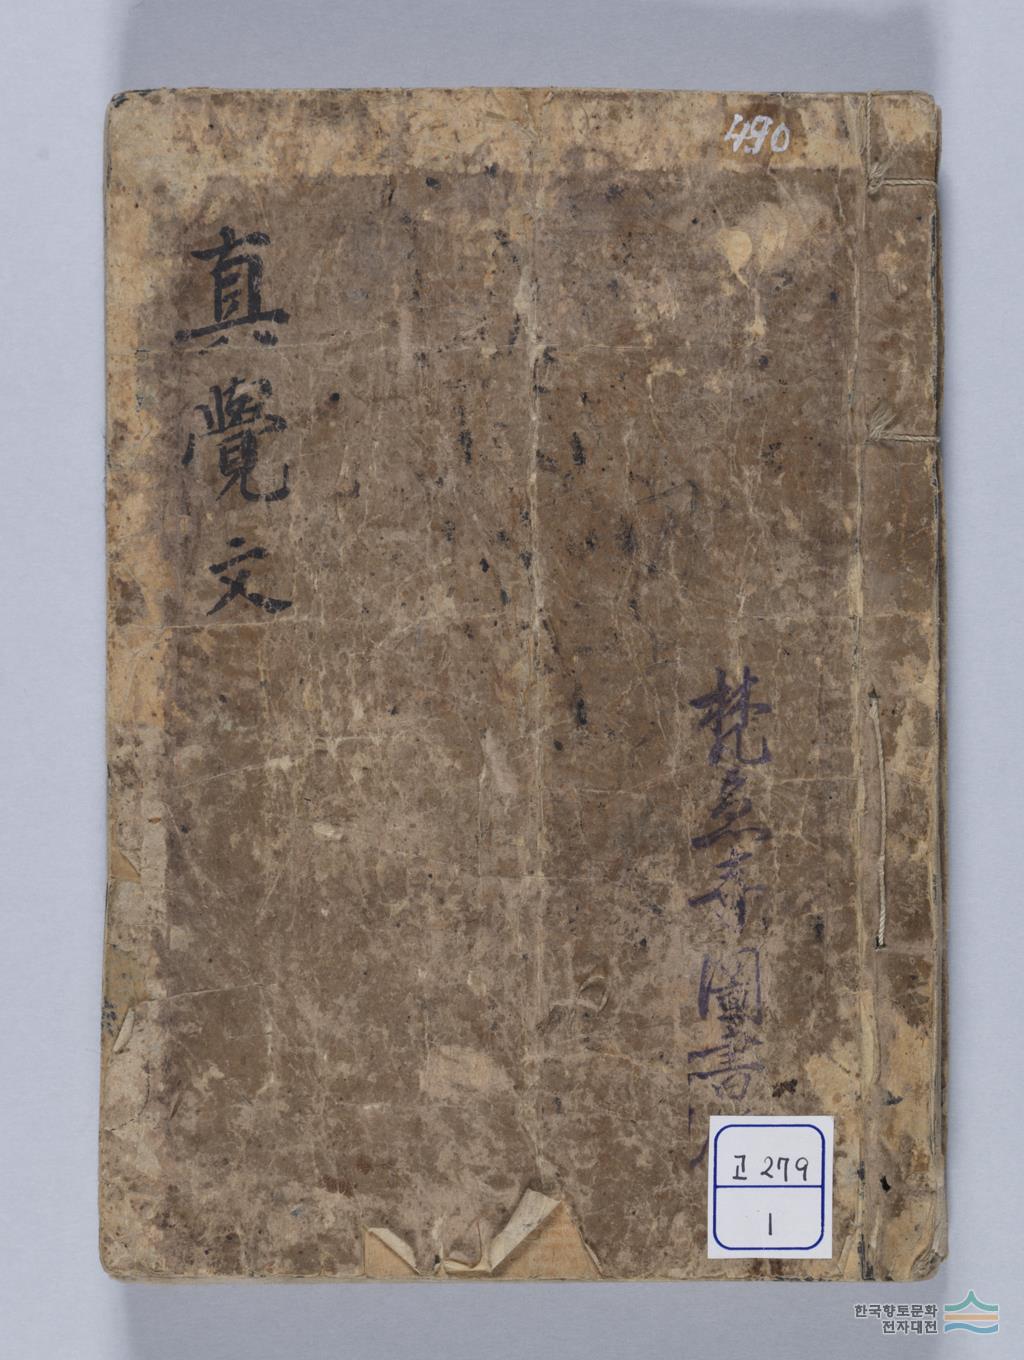 490
真覺文
梵魚寺圖書
고 279
1
한국향토문화
전자대전